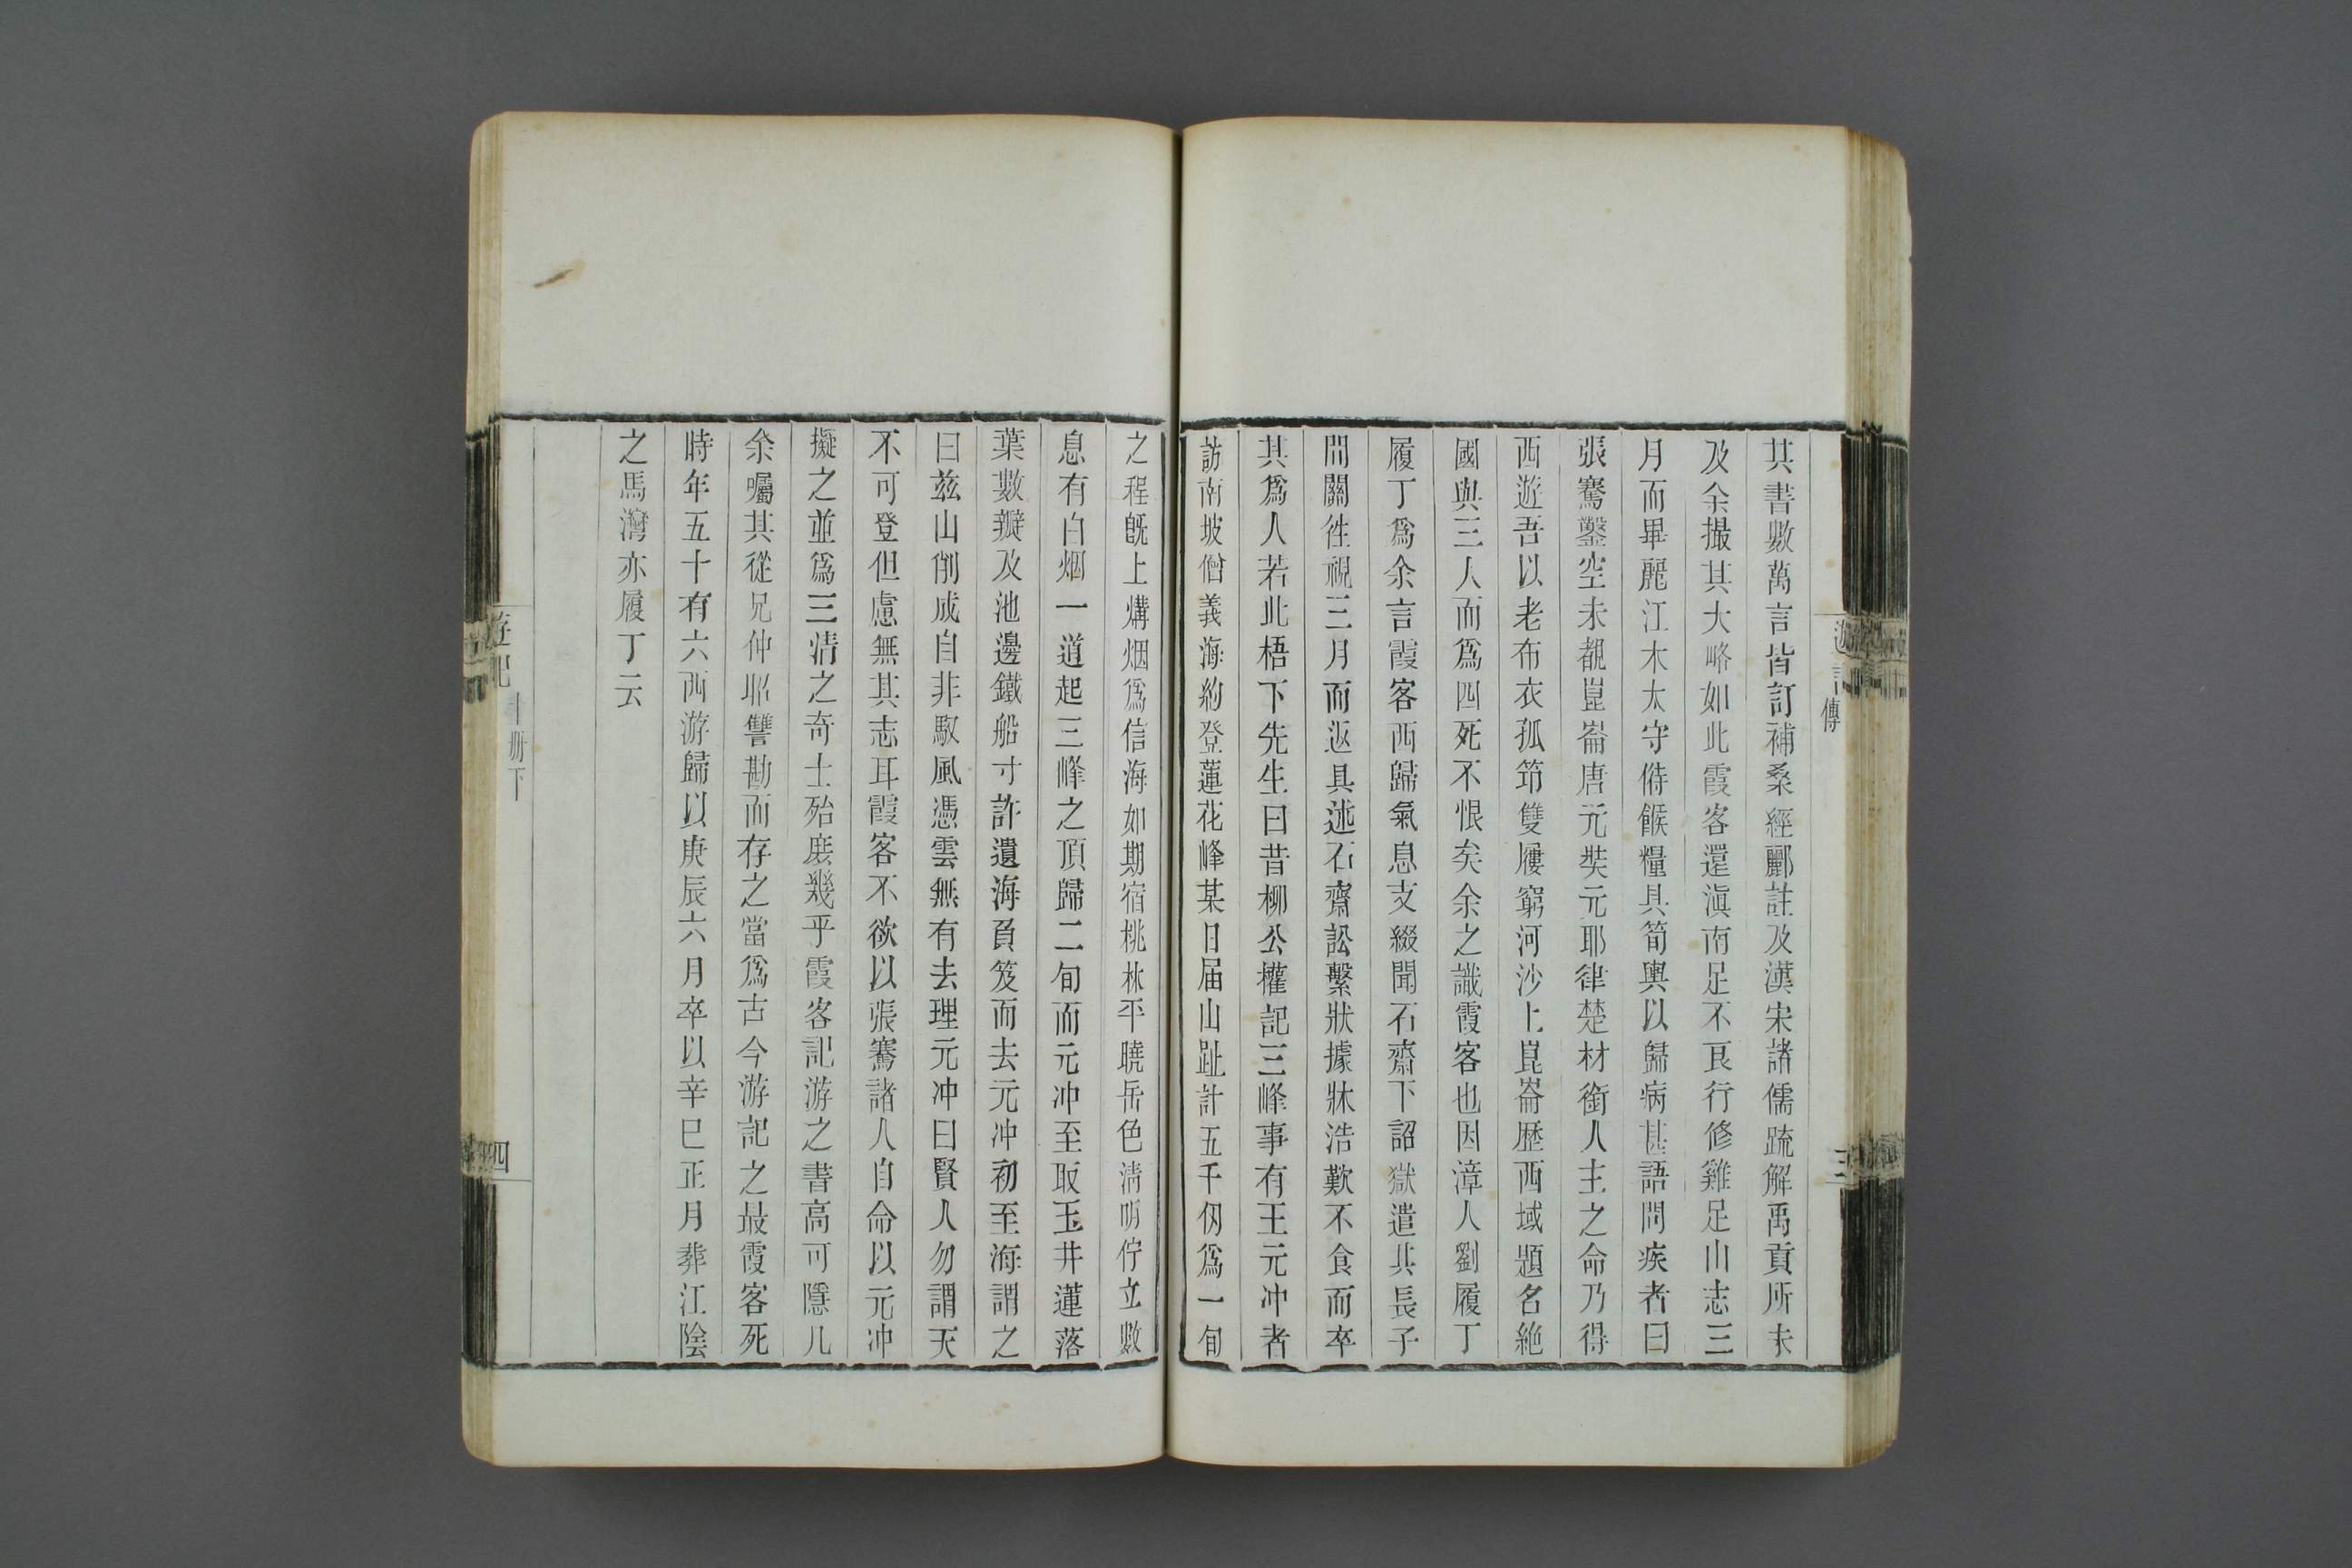 其書數萬言皆訂補桑經酈註及漢宋諸儒疏解禹貢所未
及余撮其大略如此霞客還滇南足不良行修雞足山志三
月而畢麗江木太守偫餱糧具筍輿以歸病甚語問疾者曰
張騫鑿空未覩崑崙唐元奘元耶律楚材銜人主之命乃得
西遊吾以老布衣孤筇雙屨窮河沙上崑崙歷西域題名絕
國與三人而爲四死不恨矣余之識霞客也因漳人劉履丁
履丁爲余言霞客西歸氣息支綴聞石齋下詔獄遣其長子
間關徃視三月而返具述石齋訟繫狀據牀浩歎不食而卒
其爲人若此梧下先生曰昔柳公權記三峰事有王元冲者
訪南坡僧義海約登蓮花峰某日届山趾計五千仞爲一旬
之程旣上㷭烟爲信海如期宿桃林平曉岳色淸明佇立數
息有白烟一道起三峰之頂歸二旬而元冲至取玉井蓮落
葉數瓣及池邊鐵船寸許遺海負笈而去元冲初至海謂之
曰兹山削成自非馭風憑雲無有去理元冲曰賢人勿謂天
不可登但慮無其志耳霞客不欲以張騫諸人自命以元冲
擬之並爲三淸之奇士殆庶幾乎霞客記游之書高可隱几
余囑其從兄仲昭讐勘而存之當爲古今游記之最霞客死
時年五十有六西游歸以庚辰六月卒以辛巳正月葬江陰
之馬灣亦履丁云
傳
三
游記
十册下
四